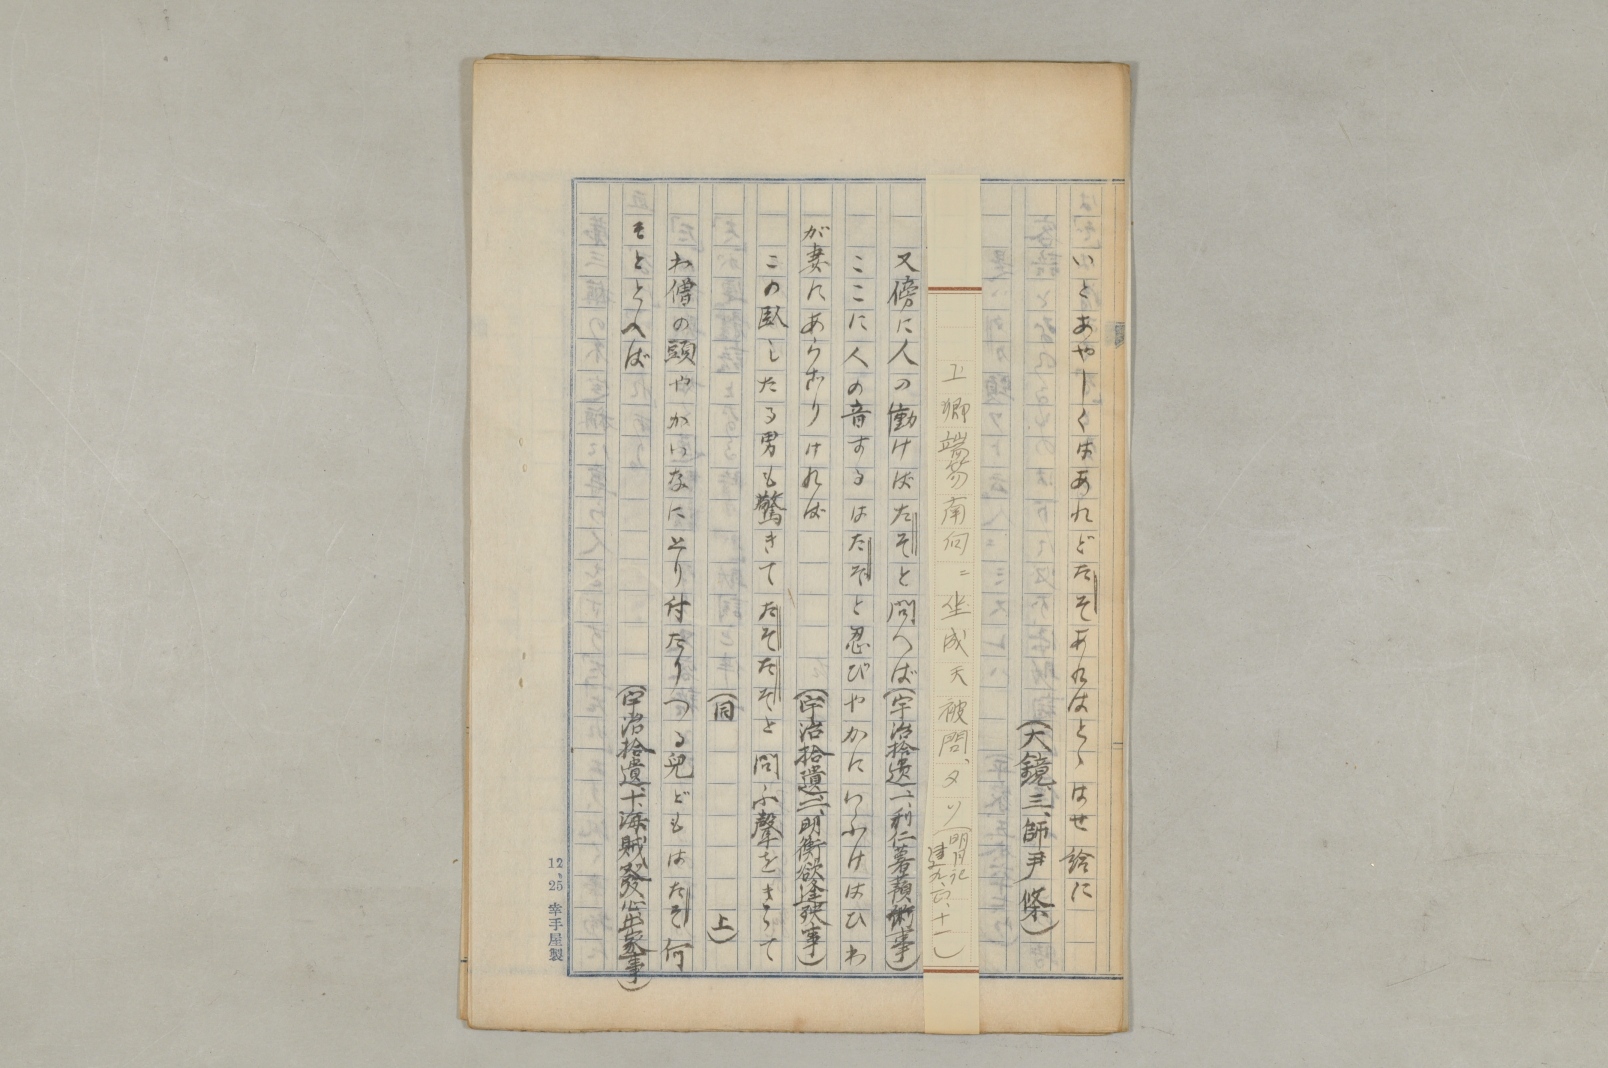 いとあやしくはあれどたそあれはとゝはせ給に
(大鏡三、師尹條)
上卿端笏南向ニ坐成天被問、タソ(明月記
建九、六、十一)
又傍に人の働けばたそと問へば(宇治拾遺一、利仁署預粥事)
ここに人の音するはたそと忍びやかにいふけはひわ
が妻にあらざりければ
(宇治拾遺二、明衡欲逢殃事)
この臥したる男も驚きてたそたそと問ふ聲をきゝて
(同 上)
わ僧の頭やかいなにとり付たりつる兒どもはたそ何
そととへば
(宇治拾遺、十、海賊發心出家事)
12、25 幸手屋製